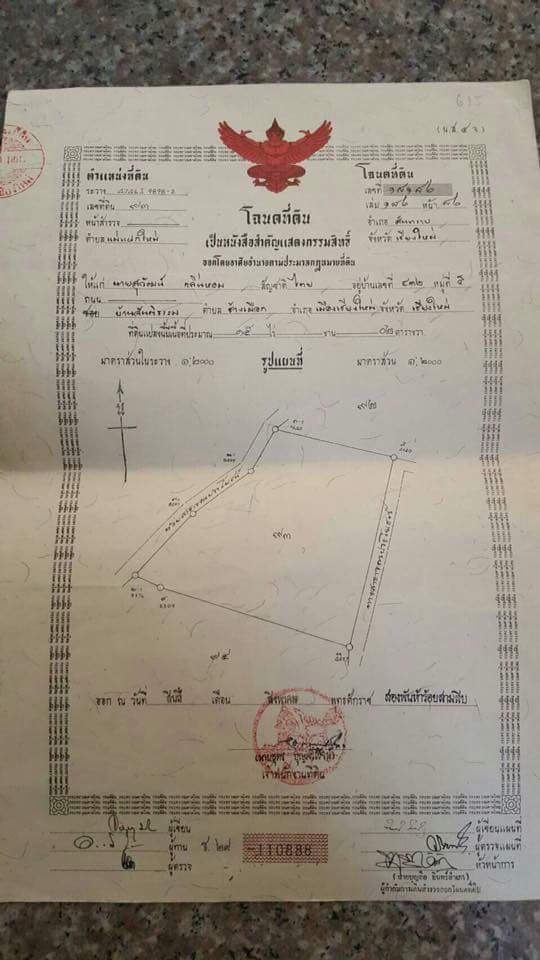 (น.ส.๔ จ.)
ตำแหน่งที่ดิน
ระวาง
เลขที่ดิน ๙๓
หน้าสำรวจ
ตำบล แม่แฝกใหม่
โฉนดที่ดิน
เลขที่ ๑๘๑๘๖
เล่ม ๑๘๒ หน้า ๘๖
อำเภอ สันทราย
จังหวัด เชียงใหม่
โฉนดที่ดิน
เป็นหนังสือสำคัญแสดงกรรมสิทธิ์
ออกโดยอาศัยอำนาจตามประมวลกฎหมายที่ดิน
ให้แก่ นายสุวัฒน์ กลิ่นหอม สัญชาติ ไทย อยู่บ้านเลขที่ ๔๓๒ หมู่ที่ ๕
ถนน
ซอย ตำบล ช้างเผือก อำเภอ เมืองเชียงใหม่ จังหวัด เชียงใหม่
ที่ดินแปลงนี้มีเนื้อที่ประมาณ ๑๕ ไร่ งาน ตารางวา
มาตราส่วนในระวาง ๑:๒๐๐๐ รูปแผนที่ มาตราส่วน ๑:๒๐๐๐
น
๙๓
ทางสาธารณประโยชน์
๙๔
ออก ณ วันที่ สิบสี่ เดือน สิงหาคม พุทธศักราช สองพันห้าร้อยสามสิบ
เจ้าพนักงานที่ดิน
ผู้เขียน
ผู้ทาน
ผู้ตรวจ
ช.๒๙
110888
ผู้เขียนแผนที่
ผู้ตรวจแผนที่
หัวหน้าการ
ผู้กำกับการเดินสำรวจออกโฉนดที่ดิน